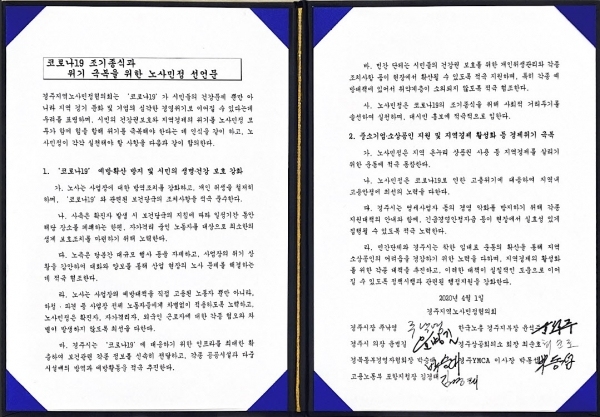 코로나19 조기종식과
위기 극복을 위한 노사민정 선언문
경주지역노사민정협의회는 '코로나19'가 시민들의 건강문제 뿐만 아
니라 지역 경기 둔화 및 기업의 심각한 경영위기로 이어질 수 있다는데
우려를 표명하며, 시민의 건강권보호와 지역경제의 위기를 노사민정 모
두가 함께 힘을 합해 위기를 극복해야 한다는 데 인식을 같이 하고, 노
사민정이 각각 실천해야 할 사항을 다음과 같이 합의한다.
1. '코로나19' 예방확산 방지 및 시민의 생명건강 보호 강화
가. 노사는 사업장에 대한 방역조치를 강화하고, 개인 위생을 철저히
하며, '코로나19'와 관련된 보건당국의 조치사항을 적극 준수한다.
나. 사측은 확진자 발생 시 보건당국의 지침에 따라 일정기간 동안
해당 장소를 폐쇄하는 한편, 자가격리 중인 노동자를 대상으로 최소한의
생계 보호조치를 마련하기 위해 노력한다.
다. 노측은 당분간 대규모 행사 등을 자제하고, 사업장의 위기 상
황을 감안하여 대화와 양보를 통해 산업 현장의 노사 문제를 해결하는
데 적극 협조한다.
라. 노사는 사업장의 예방대책을 직접 고용된 노동자 뿐만 아니라,
하청·파견 등 사업장 전체 노동자들에게 차별없이 적용하도록 노력하고,
노사민정은 확진자, 자가격리자, 외국인 근로자에 대한 각종 혐오와 차
별이 발생하지 않도록 최선을 다한다.
마. 경주시는 '코로나19'에 대응하기 위한 인프라를 최대한 확
충하여 보건관련 각종 정보를 신속히 전달하고, 각종 공공시설과 다중
시설에의 방역과 예방활동을 적극 추진한다.
바. 민간 단체는 시민들의 건강권 보호를 위한 개인위생관리와 각종
조치사항 등이 현장에서 확산될 수 있도록 적극 지원하며, 특히 각종 예
방대책에 있어서 취약계층이 소외되지 않도록 적극 협조한다.
사. 노사민정은 코로나19의 조기종식을 위해 사회적 거리두기를
솔선하여 실천하며, 대시민 홍보에 적극적으로 임한다.
2. 중소기업·소상공인 지원 및 지역경제 활성화 등 경제위기 극복
가. 노사민정은 지역 온누리 상품권 사용 등 지역경제를 살리기
위한 운동에 적극 동참한다.
나. 노사민정은 코로나19로 인한 고용위기에 대응하여 지역내
고용안정에 최선의 노력을 다한다.
다. 경주시는 영세사업자 등의 경영 악화를 방지하기 위해 각종
지원대책의 안내와 함께, 긴급경영안정자금 등이 현장에서 실효성 있게
집행될 수 있도록 적극 노력한다.
라. 민간단체와 경주시는 착한 임대료 운동의 확산을 통해 지역
소상공인의 어려움을 경감하기 위한 노력을 다하며, 지역경제의 활성화
를 위한 각종 대책을 추진하고, 이러한 대책이 실질적인 도움으로 이어
질 수 있도록 정책시행과 관련된 행정지원을 강화한다.
2020년 4월 1일
경주지역노사민정협의회
경주시장 주낙영 한국노총 경주지역부장
경주시 의장 윤병길 경주상공회의소 회장 최순호
경북동부경영자협회장 경주YMCA 이사장
고용노동부 포항지청장